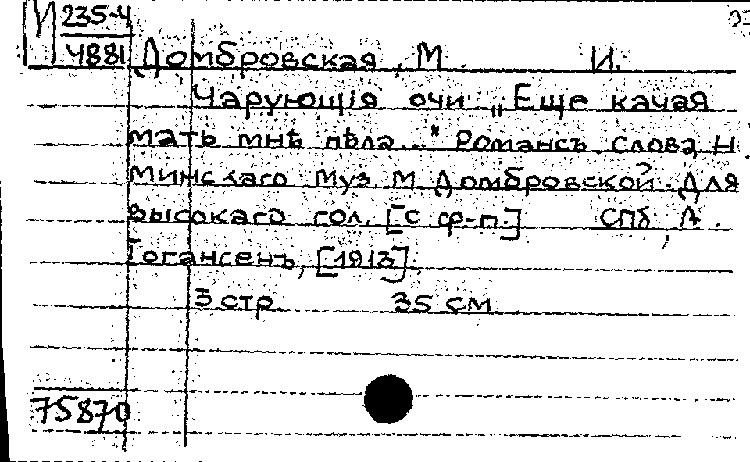 И 235-4
4881 Домбровская, М. И.
Чарующія очи „Еще качая
мать мнѣ пѣла..." Романсъ. Слова Н.
Минскаго. Муз. М. Домбровской. Для
высокаго гол. [с ф-п.] СПб, А.
Іогансенъ, [1913].
3 стр. 35 см.
75870